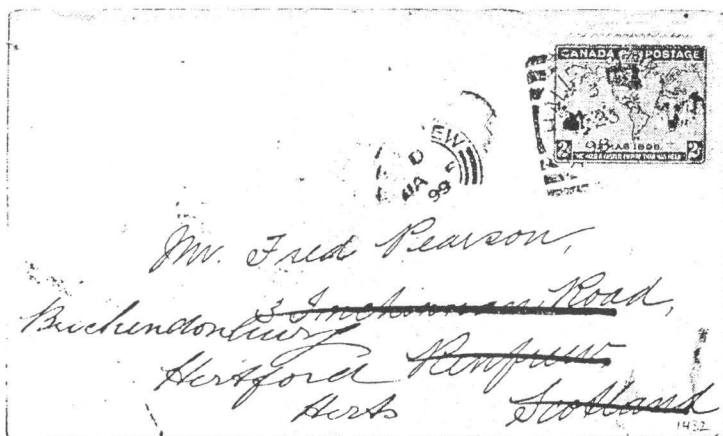 CANADA POSTAGE
XMAS 1898
2 2
WE HOLD A VASTER EMPIRE THAN HAS BEEN
EW
D
JA 5
99
Mr. Fred Pearson,
3 Inchinnan Road,
Brickendonbury
Hertford Renfrew
Herts Scotland
1432